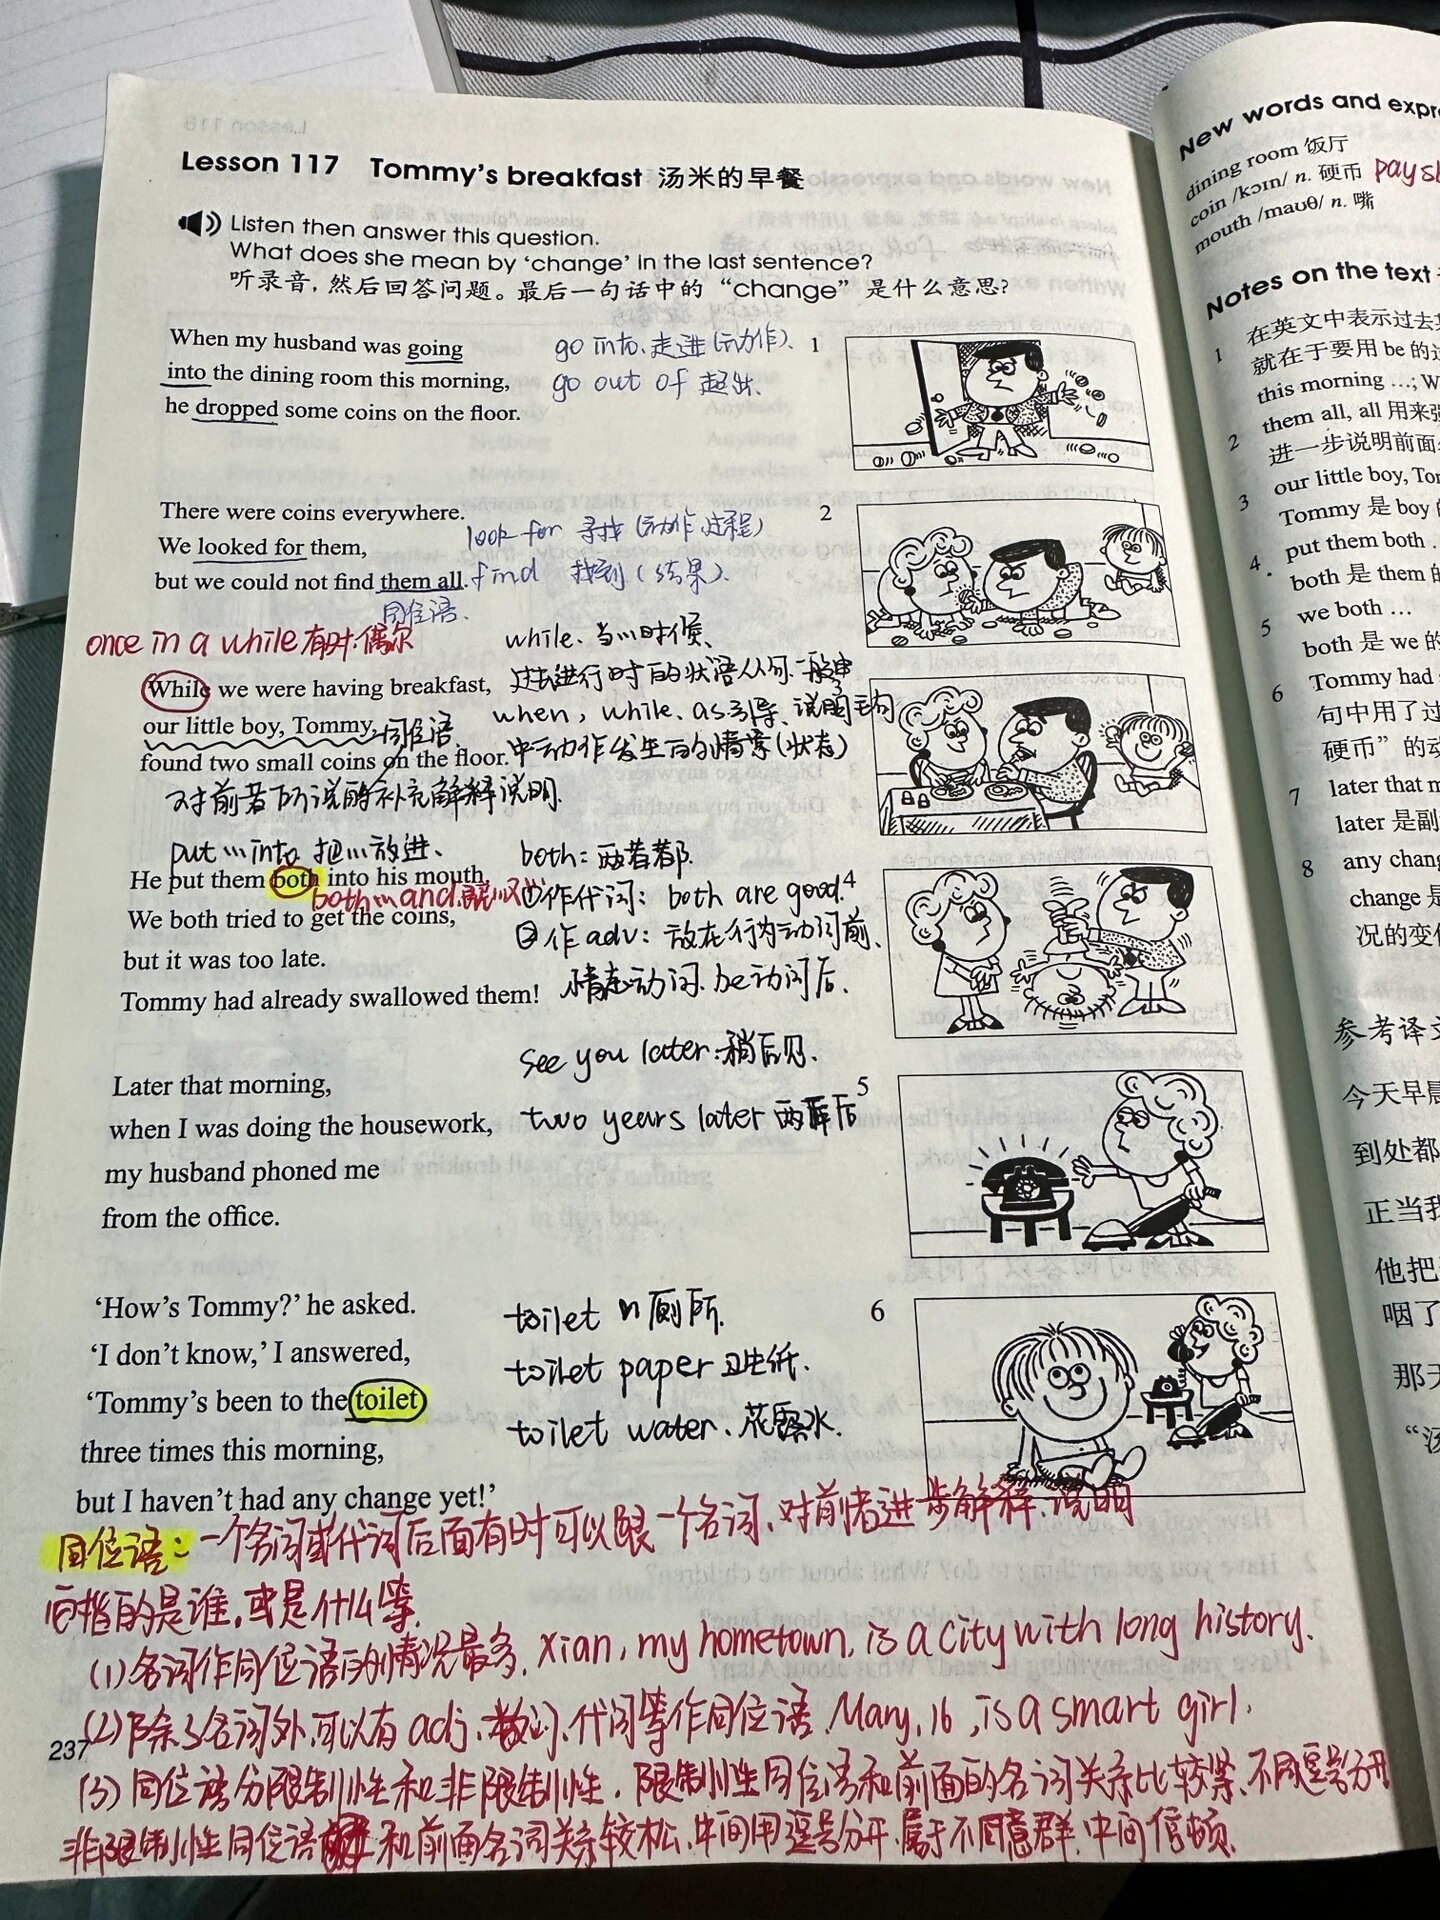 Lesson 117 Tommy's breakfast 汤米的早餐
Listen then answer this question.
What does she mean by 'change' in the last sentence?
听录音，然后回答问题。最后一句话中的“change”是什么意思?
When my husband was going
into the dining room this morning,
he dropped some coins on the floor.
go into. 走进(动作).
go out of 走出.
1
There were coins everywhere.
We looked for them,
but we could not find them all.
look for 寻找(动作.过程)
find 找到(结果).
同位语.
2
once in a while 有时.偶尔
While we were having breakfast,
our little boy, Tommy,
同位语
found two small coins on the floor.
对前者所说的补充解释说明.
while. 当…时候.
过去进行时的状语从句.一般由
when, while. as引导.说明
中动作发生的情景(状态)
put…into 把…放进.
He put them both into his mouth.
both…and.
We both tried to get the coins,
but it was too late.
Tommy had already swallowed them!
both: 两者都.
①作代词: both are good.
②作adv: 放在行为动词前.
情态动词. be动词后.
4
Later that morning,
when I was doing the housework,
my husband phoned me
from the office.
see you later: 稍后见.
two years later 两年后
5
'How's Tommy?' he asked.
'I don't know,' I answered,
'Tommy's been to the toilet
three times this morning,
but I haven't had any change yet!'
toilet n 厕所.
toilet paper 卫生纸.
toilet water. 花露水.
6
同位语: 一个名词或代词后面有时可以跟一个名词.对前者进一步解释.说明
它指的是谁.或是什么等.
(1)名词作同位语的情况最多. xian, my hometown, is a city with long history.
(2)除了名词外.可以有adj.数词.代词等作同位语. Mary, 16, is a smart girl.
(3)同位语分限制性和非限制性. 限制性同位语和前面的名词关系比较紧.不用逗号分开
非限制性同位语 和前面名词关系较松.中间用逗号分开.属于不同意群.中间停顿.
237
New words and expr
dining room 饭厅
coin /kɔɪn/ n. 硬币
mouth /maʊθ/ n. 嘴
Notes on the text
1 在英文中表示过去
就在于要用 be 的过
this morning …; W
2 them all, all 用来强
进一步说明前面
3 our little boy, Tom
Tommy 是 boy 的
4 put them both
both 是 them 的
5 we both …
both 是 we 的
6 Tommy had
句中用了过
硬币”的动
7 later that m
later 是副
8 any chang
change 是
况的变化
参考译文
今天早晨
到处都
正当我
他把
咽了
那天